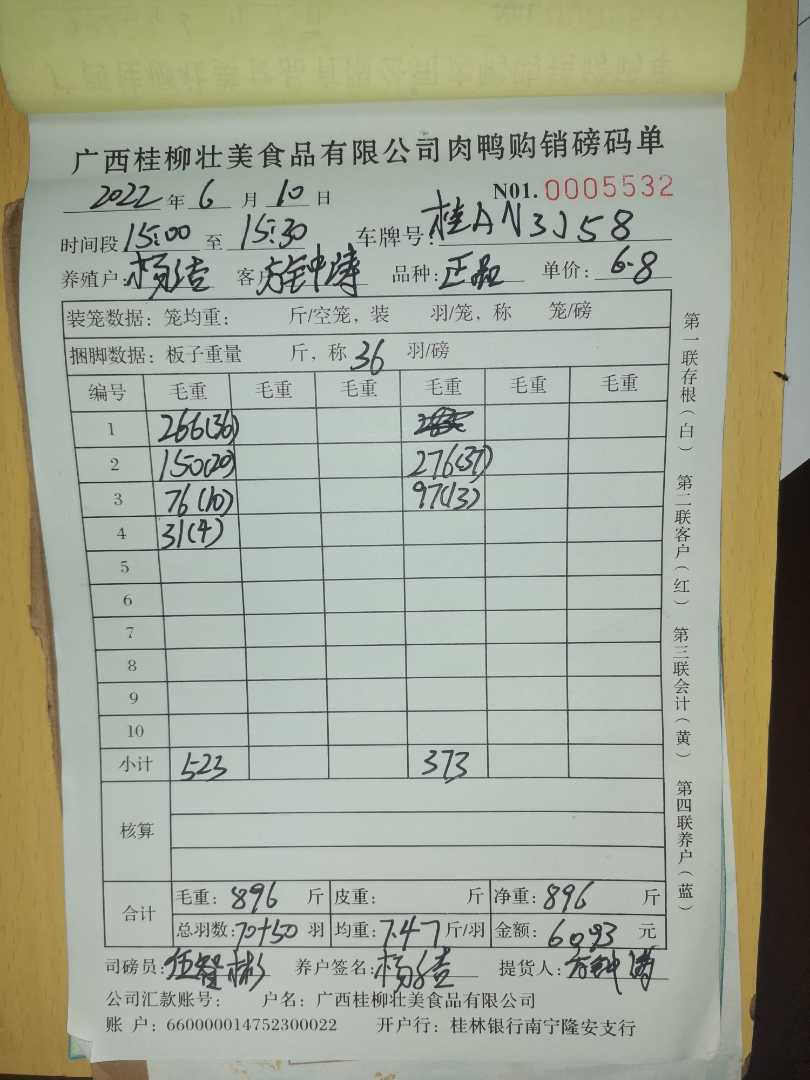 广西桂柳壮美食品有限公司肉鸭购销磅码单
2022 年 6 月 10 日 N01. 0005532
时间段 15:00 至 15:30 车牌号: 桂AN3J58
养殖户: 杨洁 客户 方钟涛 品种: 正品 单价: 6.8
装笼数据: 笼均重: 斤/空笼, 装 羽/笼, 称 笼/磅
捆脚数据: 板子重量 斤, 称 36 羽/磅
编号 毛重 毛重 毛重 毛重 毛重 毛重
1 266(36)
2 150(20) 276(37)
3 76(10) 97(13)
4 31(4)
5
6
7
8
9
10
小计 523 373
核算
合计
毛重: 896 斤 皮重: 斤 净重: 896 斤
总羽数: 70+50 羽 均重: 7.47 斤/羽 金额: 6093 元
司磅员: 伍智彬 养户签名: 杨洁 提货人: 方钟涛
公司汇款账号: 户名: 广西桂柳壮美食品有限公司
账 户: 660000014752300022 开户行: 桂林银行南宁隆安支行
第一联存根(白) 第二联客户(红) 第三联会计(黄) 第四联养户(蓝)